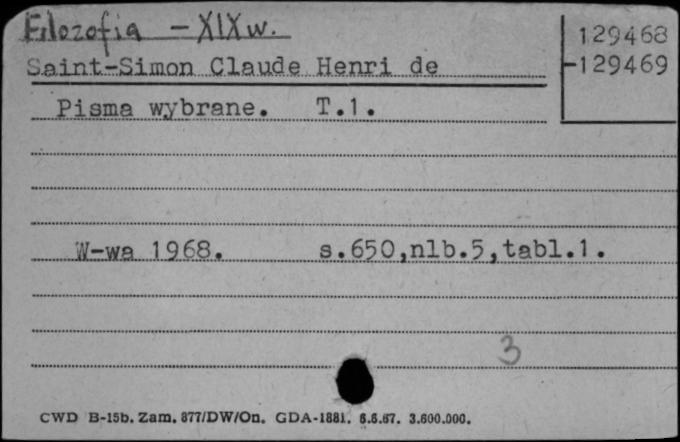 Filozofia - XIX w.
129468
-129469
Saint-Simon Claude Henri de
Pisma wybrane. T.1.
W-wa 1968. s.650,nlb.5,tabl.1.
3
CWD B-15b. Zam. 877/DW/On. GDA-1881. 6.6.67. 3.600.000.